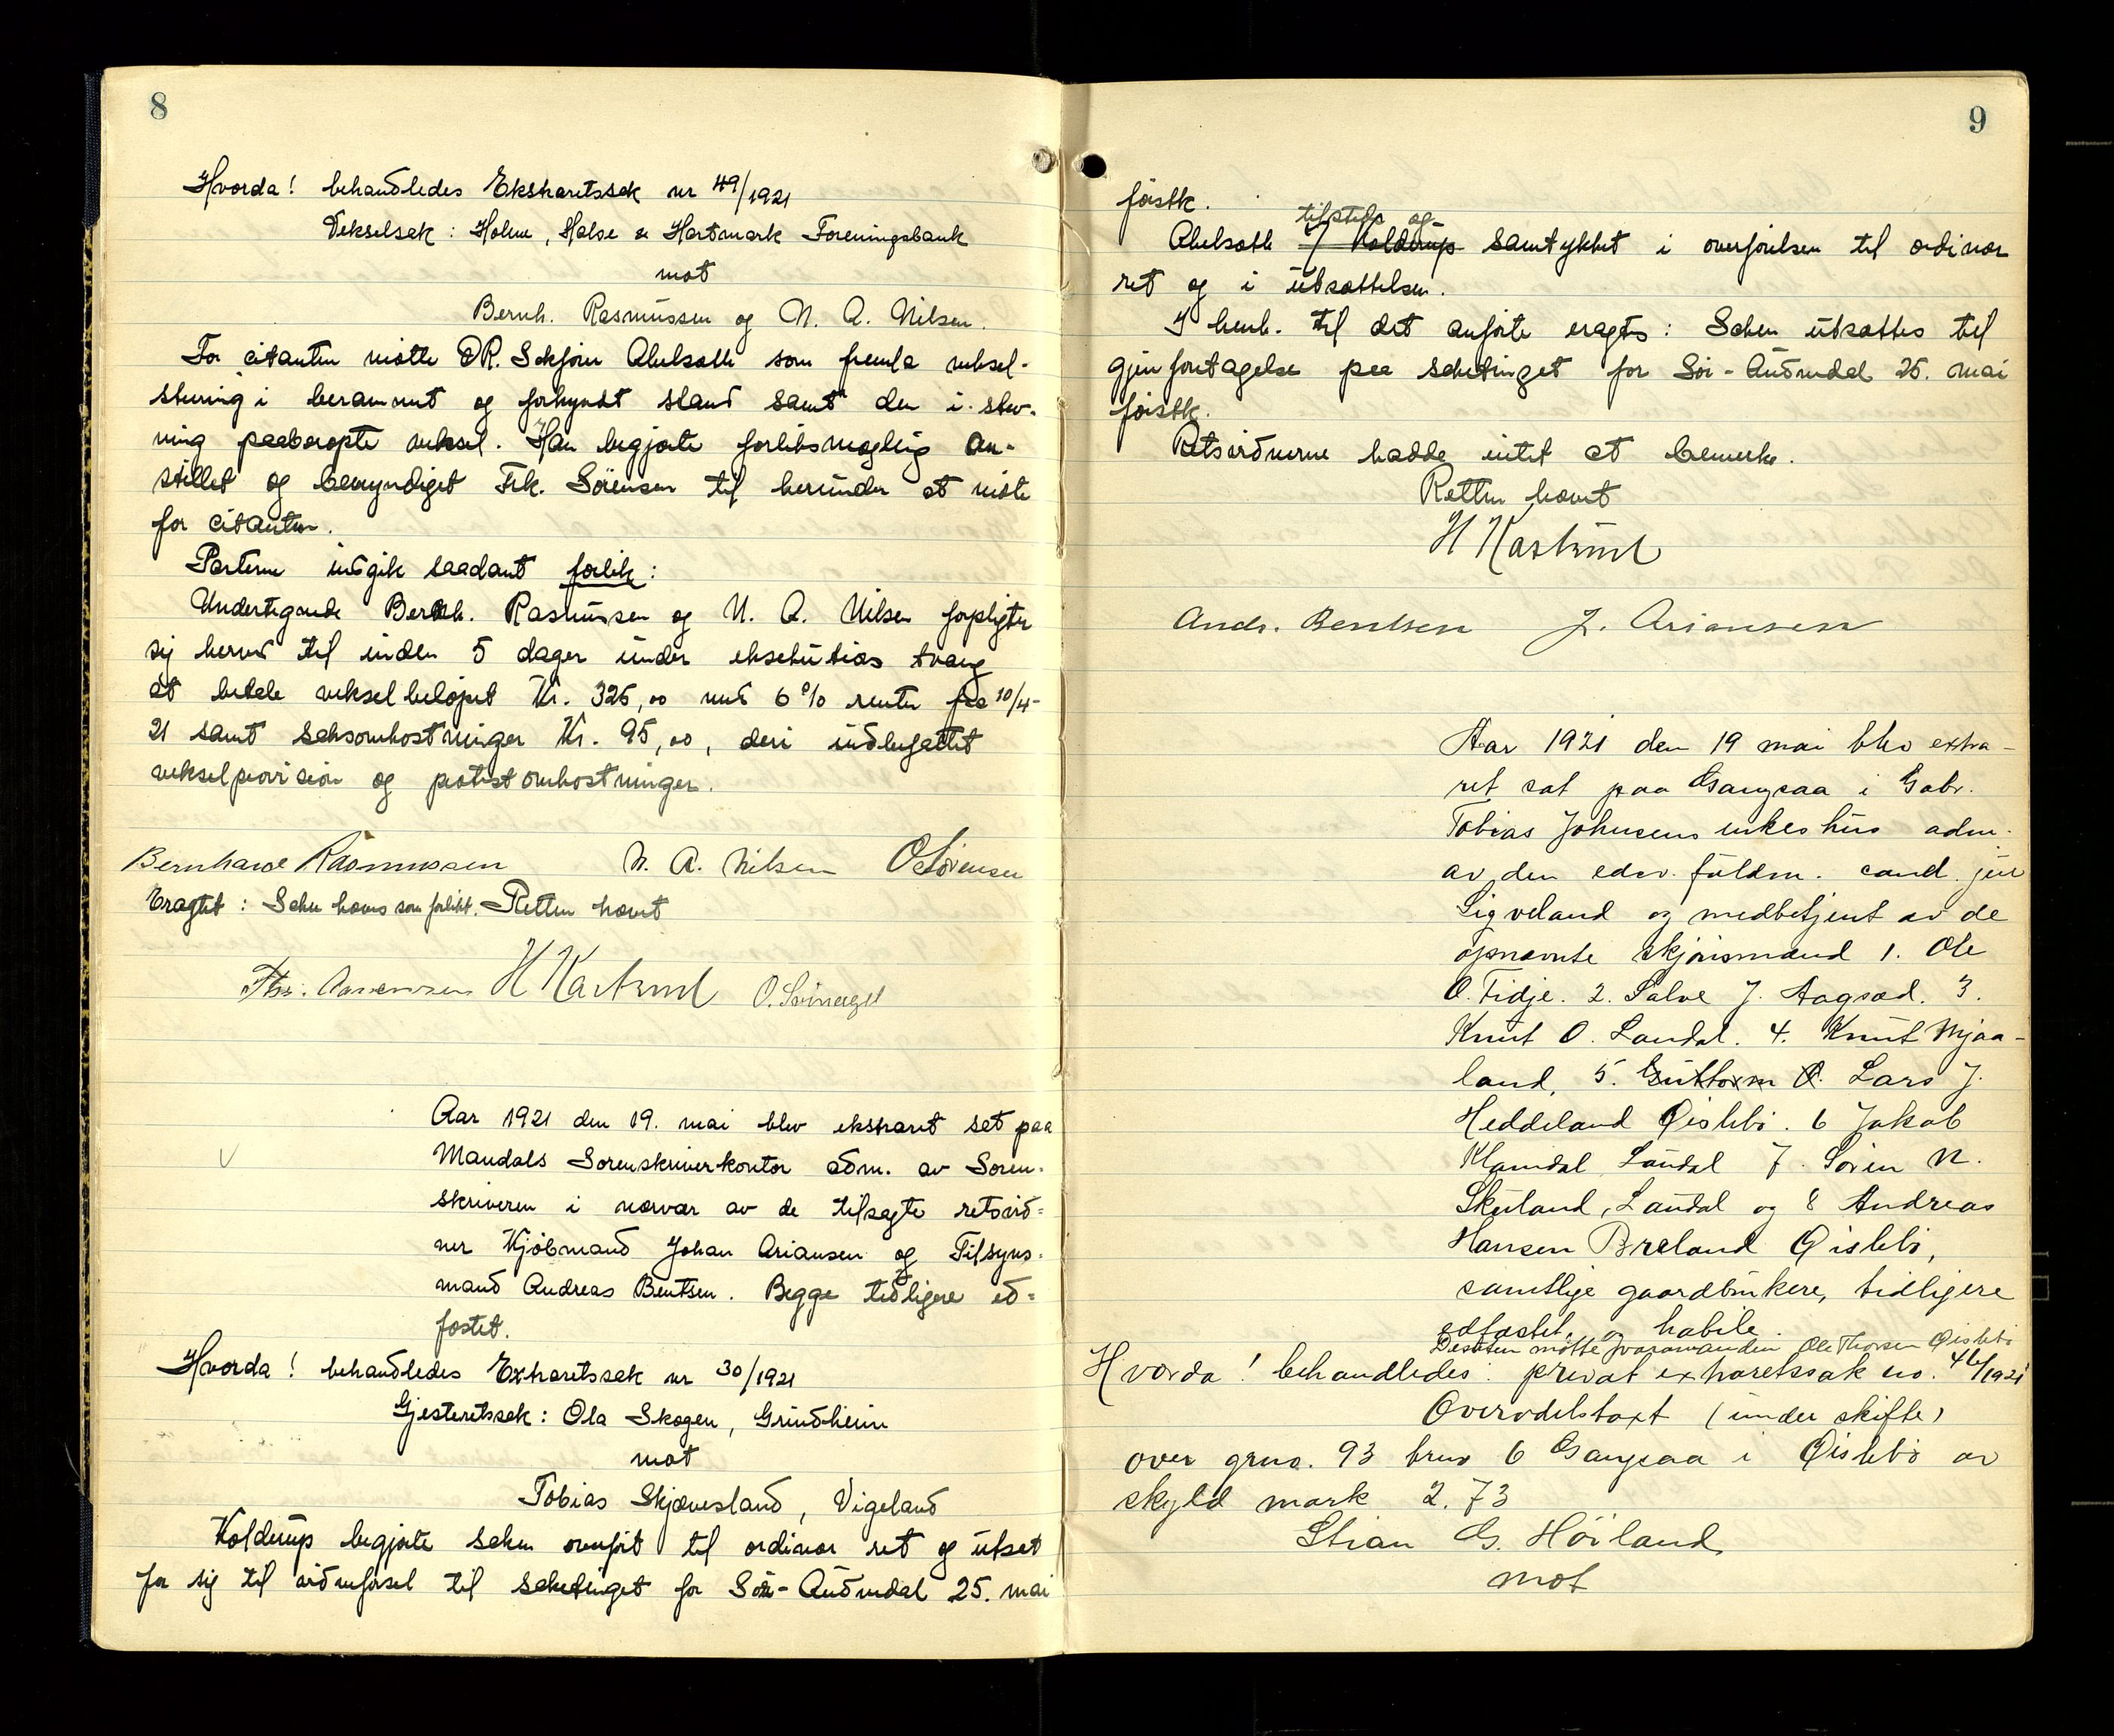 8
Hvorda! behandledes Ekstraretssak nr 49/1921
Vekselsak: Holme, Halse & Hartmark Foreningsbank
mot
Bernh. Rasmussen og N. A. Nilsen.
For citanten møtte OR. Sakfører Abelsæth som fremla veksel-
stevning i berammet og forkyndt stand samt den i stev-
ning paaberopte veksel. Han begjærte forliksmægling an-
stillet og bemyndiget Frk. Sörensen til herunder at møte
for citanten.
Parterne indgik saadant forlik:
Undertegnede Bernh. Rasmussen og N. A. Nilsen forpligter
sig herved til inden 5 dager under eksekutions tvang
at betale vekselbeløpet Kr. 325,00 med 6% renter fra 10/4-
21 samt saksomkostninger Kr. 95,00, deri indbefattet
vekselprovision og protestomkostninger.
Bernhard Rasmussen N. A. Nilsen O Sörensen
Eragtet: Saken hæves som forlikt. Retten hævet
Aanensen H Kastrud
Aar 1921 den 19. mai blev ekstraret sat paa
Mandals Sorenskriverkontor adm. av Soren-
skriveren i nærvær av de tilsagte retsvid-
ner Kjöbmand Johan Ariansen og Tilsyns-
mand Andreas Bentsen. Begge tidligere ed-
fæstet.
Hvorda! behandledes Extraretssak nr 30/1921
Gjesteretssak: Ola Skogen, Grindheim
mot
Tobias Skjævesland, Vigeland
Kolderup begjærte saken overført til ordinær ret og utsat
for sig til vidneførsel til saketinget for Sör-Audnedal 25. mai
9
førstk.
tilstede og
Abelsæth f Kolderup samtykket i overførelsen til ordinær
ret og i utsættelsen.
I henh. til det anførte eragtes: Saken utsættes til
gjenforetagelse paa saketinget for Sör-Audnedal 25. mai
førstk.
Retsvidnerne hadde intet at bemerke.
Retten hævet
H Kastrud
Andr. Bentsen J. Ariansen
Aar 1921 den 19 mai blev extra-
ret sat paa Gangsaa i Gabr.
Tobias Johnsens enkes hus adm.
av den edsv. fuldm. cand. jur
Sigveland og medbetjent av de
opnævnte skjønsmænd 1. Ole
O. Tidje. 2. Salve J. Aagsæd. 3.
Knut O. Laudal. 4. Knut Mjaa-
land, 5. Guttorm O. Lars J.
Heddeland Øislebö. 6 Jakob
Klemdal Laudal 7. Sören N.
Skuland, Laudal og 8 Andreas
Hansen Breland Øislebö,
samtlige gaardbrukere, tidligere
edfæstet og habile.
Desuten møtte Ole Thorsen Øislebö
Hvorda! behandledes: privat extraretssak no. 46/1921
Overodelstaxt (under skifte)
over grno. 93 brno 6 Gangsaa i Øislebö av
skyld mark 2.73
Stian G. Höiland
mot